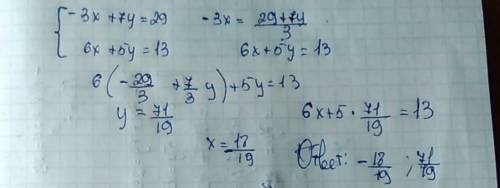 { -3x + 7y = 29    -3x = (29+7y)/3
6x + 5y = 13    6x + 5y = 13
6(-29/3 + 7/3 y) + 5y = 13
y = 71/19    6x + 5 · 71/19 = 13
x = 18/19    Ответ: -18/19 ; 71/19